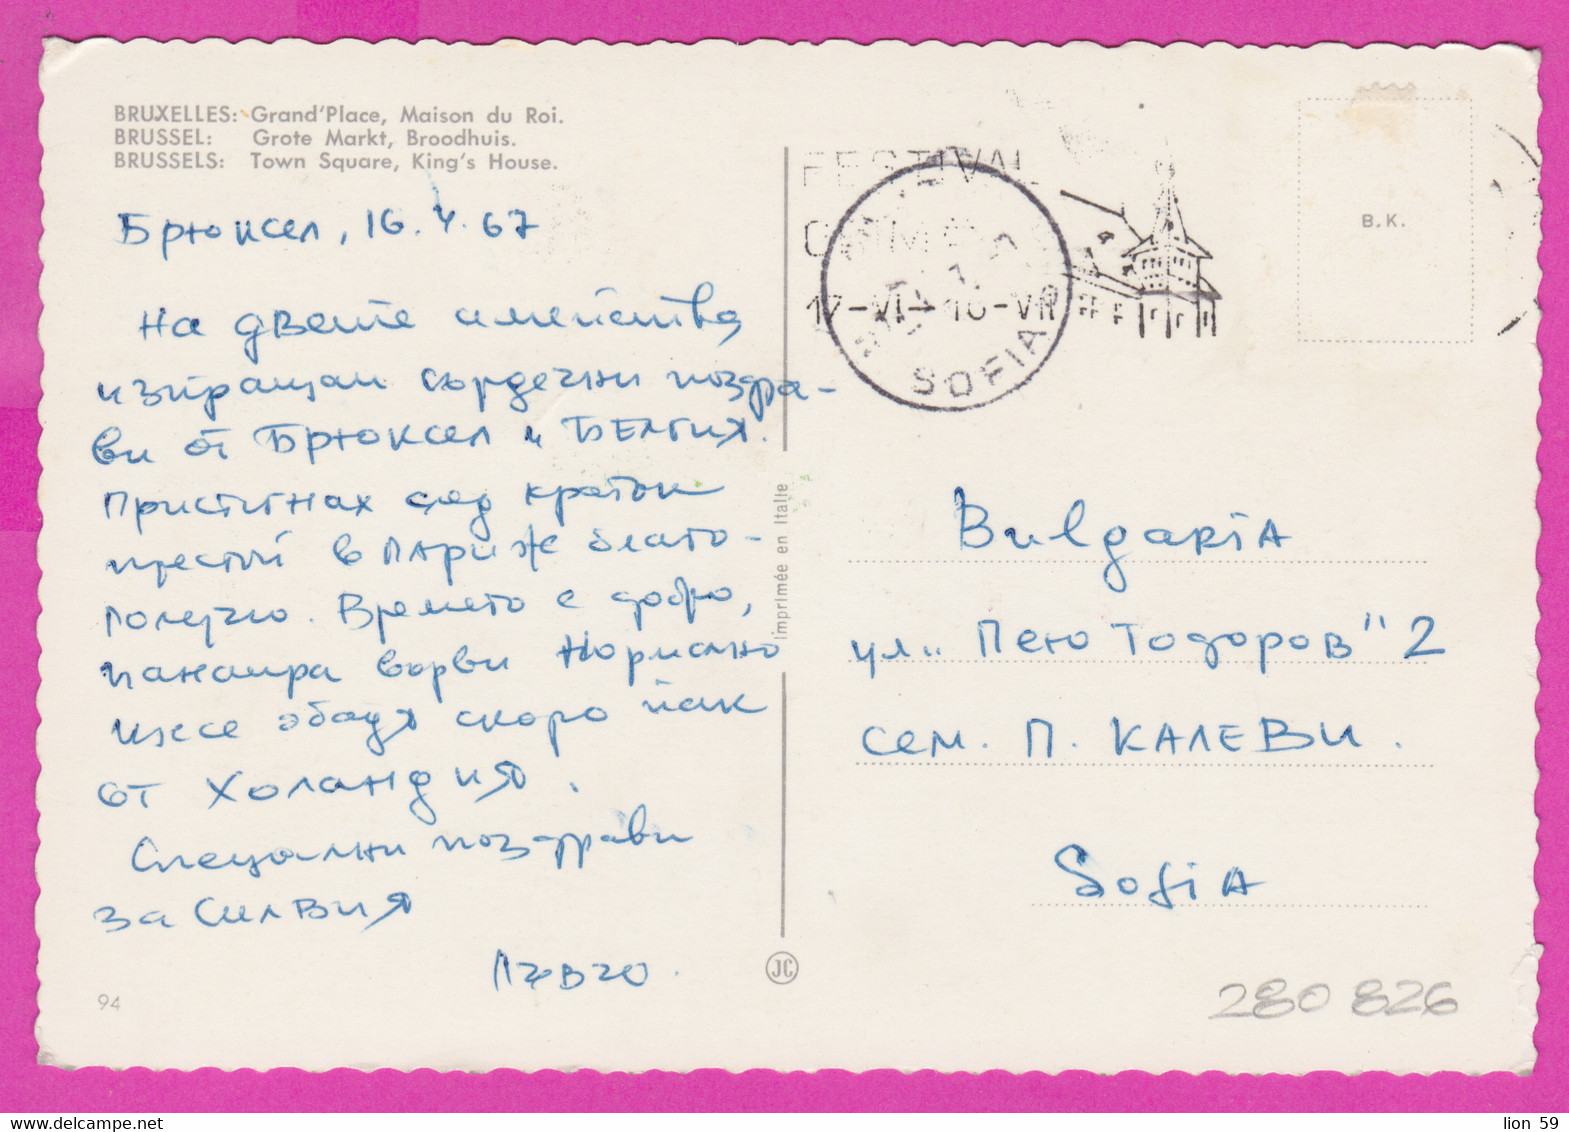 BRUXELLES: Grand'Place, Maison du Roi.
BRUSSEL: Grote Markt, Broodhuis.
BRUSSELS: Town Square, King's House.
Брюксел, 16. V. 67
На двете семейства
изпращам сърдечни поздра-
ви от Брюксел и БЕЛГИЯ.
Пристигнах след кратък
престой в Париж благо-
получно. Времето е добро,
панаира върви нормално
скоро пак
от Холандия.
Специални поздрави
за Силвия
94
Imprimée en Italie
JC
FESTIVAL
17-VI - 16-VII
SOFIA
B.K.
BulgariA
ул. „Пею Тодоров" 2
сем. П. КАЛЕВИ.
SofiA
280 826
lion 59